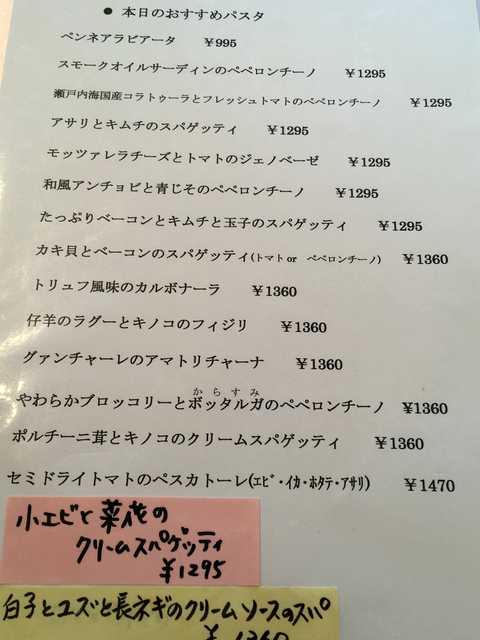 ● 本日のおすすめパスタ
ペンネアラビアータ ¥995
スモークオイルサーディンのペペロンチーノ ¥1295
瀬戸内海国産コラトゥーラとフレッシュトマトのペペロンチーノ ¥1295
アサリとキムチのスパゲッティ ¥1295
モッツァレラチーズとトマトのジェノベーゼ ¥1295
和風アンチョビと青じそのペペロンチーノ ¥1295
たっぷりベーコンとキムチと玉子のスパゲッティ ¥1295
カキ貝とベーコンのスパゲッティ(トマト or ペペロンチーノ) ¥1360
トリュフ風味のカルボナーラ ¥1360
仔羊のラグーとキノコのフィジリ ¥1360
グァンチャーレのアマトリチャーナ ¥1360
からすみ
やわらかブロッコリーとボッタルガのペペロンチーノ ¥1360
ポルチーニ茸とキノコのクリームスパゲッティ ¥1360
セミドライトマトのペスカトーレ(エビ・イカ・ホタテ・アサリ) ¥1470
小エビと菜花の
クリームスパゲッティ
¥1295
白子とユズと長ネギのクリームソースのスパ
¥1360